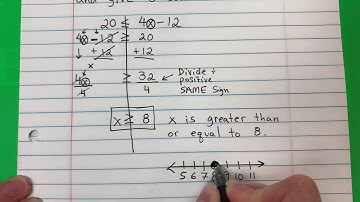 and give 3
20 ≤ 4x - 12
4x - 12 ≥ 20
+ 12 +12
4x ≥ 32
4 4
Divide +
positive
SAME Sign
x ≥ 8
x is greater than
or equal to 8.
5 6 7 8 9 10 11